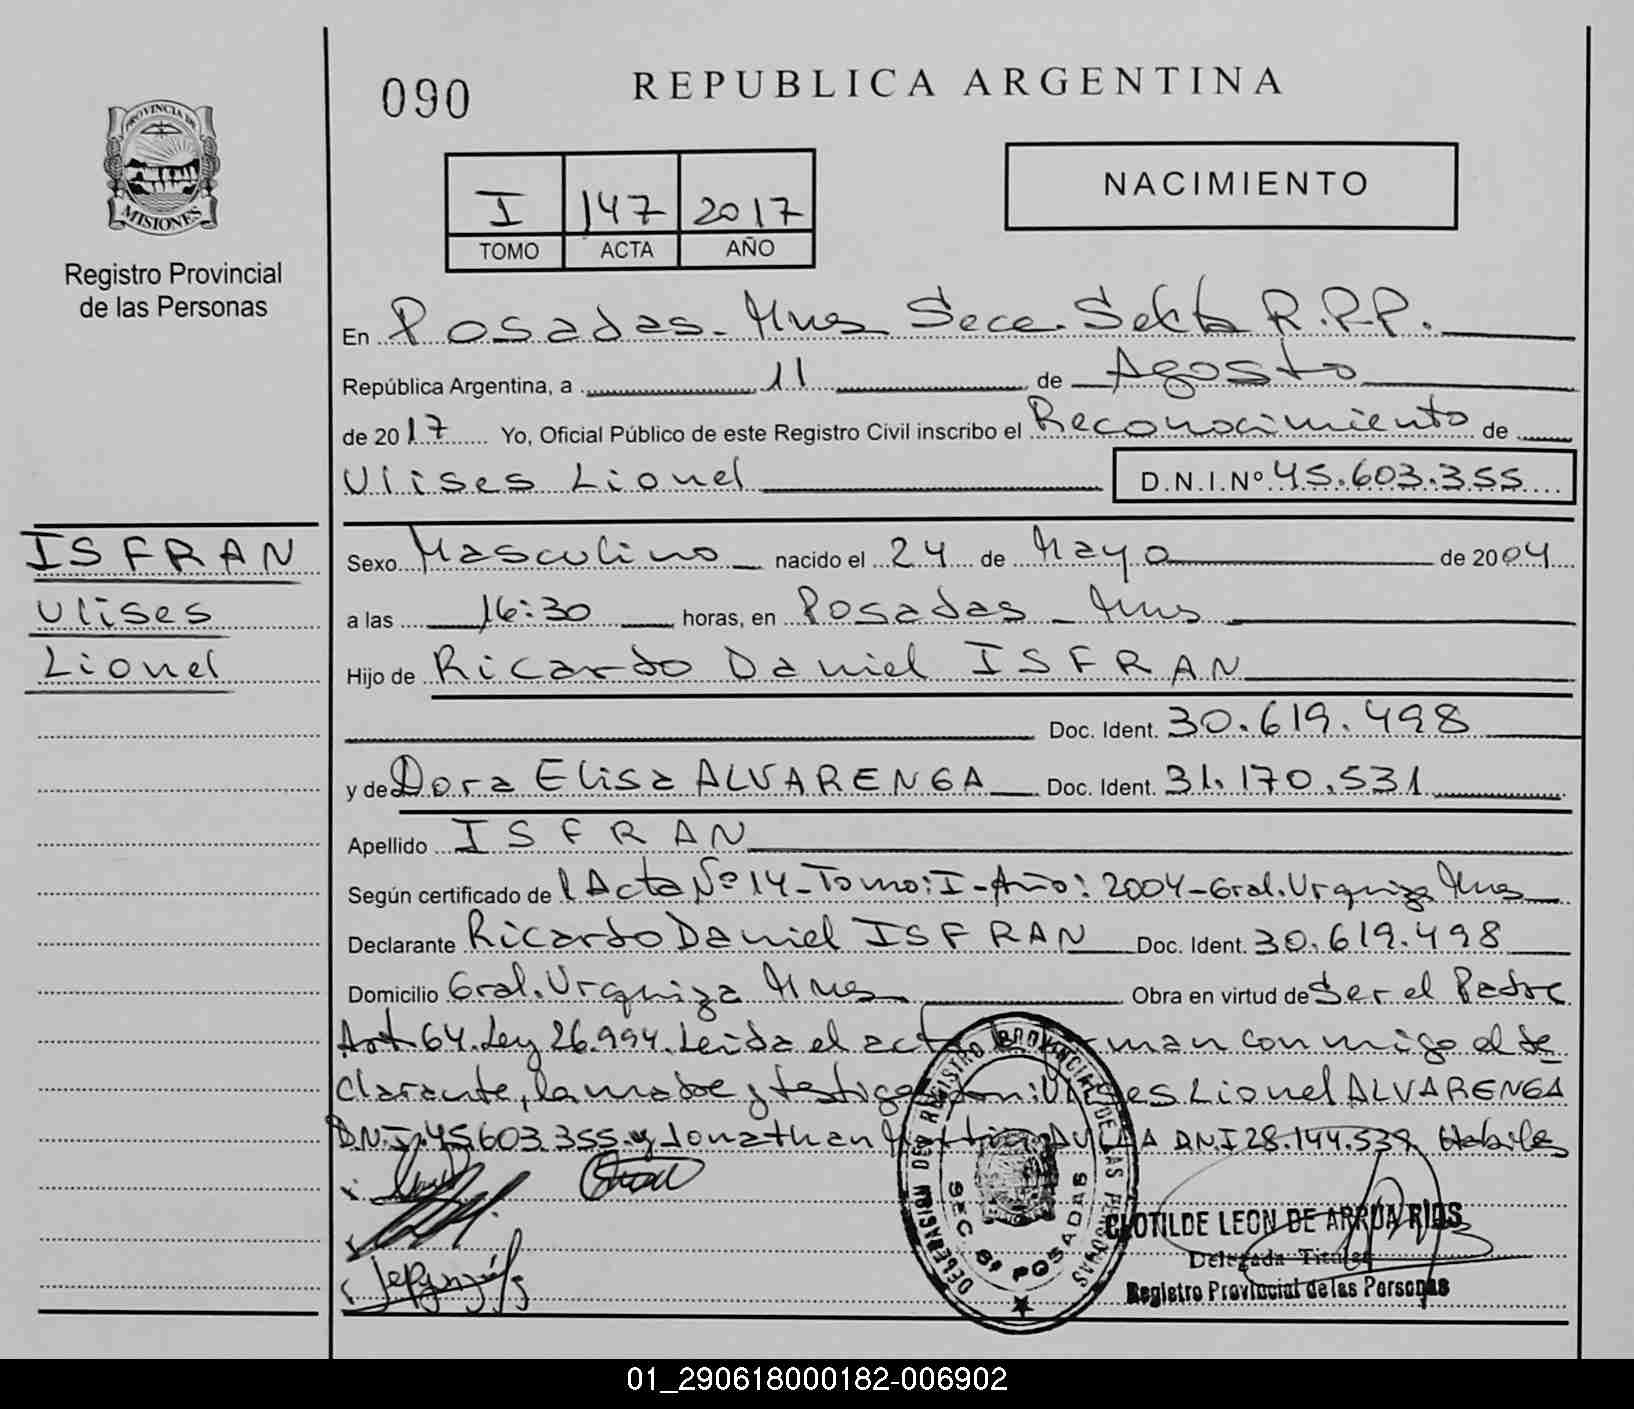 090
REPUBLICA ARGENTINA
PROVINCIA DE
MISIONES
Registro Provincial
de las Personas
NACIMIENTO
I 147 2017
TOMO ACTA AÑO
En Posadas - Mnes Secc. Sexta R.P.P.
República Argentina, a 11 de Agosto
de 2017 Yo, Oficial Público de este Registro Civil inscribo el Reconocimiento de
Ulises Lionel D.N.I.Nº 45.603.355
ISFRAN
Ulises
Lionel
Sexo Masculino nacido el 24 de Mayo de 2004
a las 16:30 horas, en Posadas - Mnes
Hijo de Ricardo Daniel ISFRAN
Doc. Ident. 30.619.498
y de Dora Elisa ALVARENGA Doc. Ident. 31.170.531
Apellido ISFRAN
Según certificado de l Acta Nº 14 - Tomo: I - Año: 2004 - Gral. Urquiza Mnes
Declarante Ricardo Daniel ISFRAN Doc. Ident. 30.619.498
Domicilio Gral. Urquiza Mnes Obra en virtud de Ser el Padre
Art 64. Ley 26.994. Leida el acta man conmigo el de
clarante, la madre y testigos Lionel ALVARENGA
D.N.I. 45.603.355 y Jonathan D.N.I 28.144.539 Habiles
DELEGACION DEL REGISTRO PROVINCIAL DE LAS PERSONAS
SEC. 6ª POSADAS
CLOTILDE LEON DE ARRUA RIOS
Delegada Titular
Registro Provincial de las Personas
01_290618000182-006902